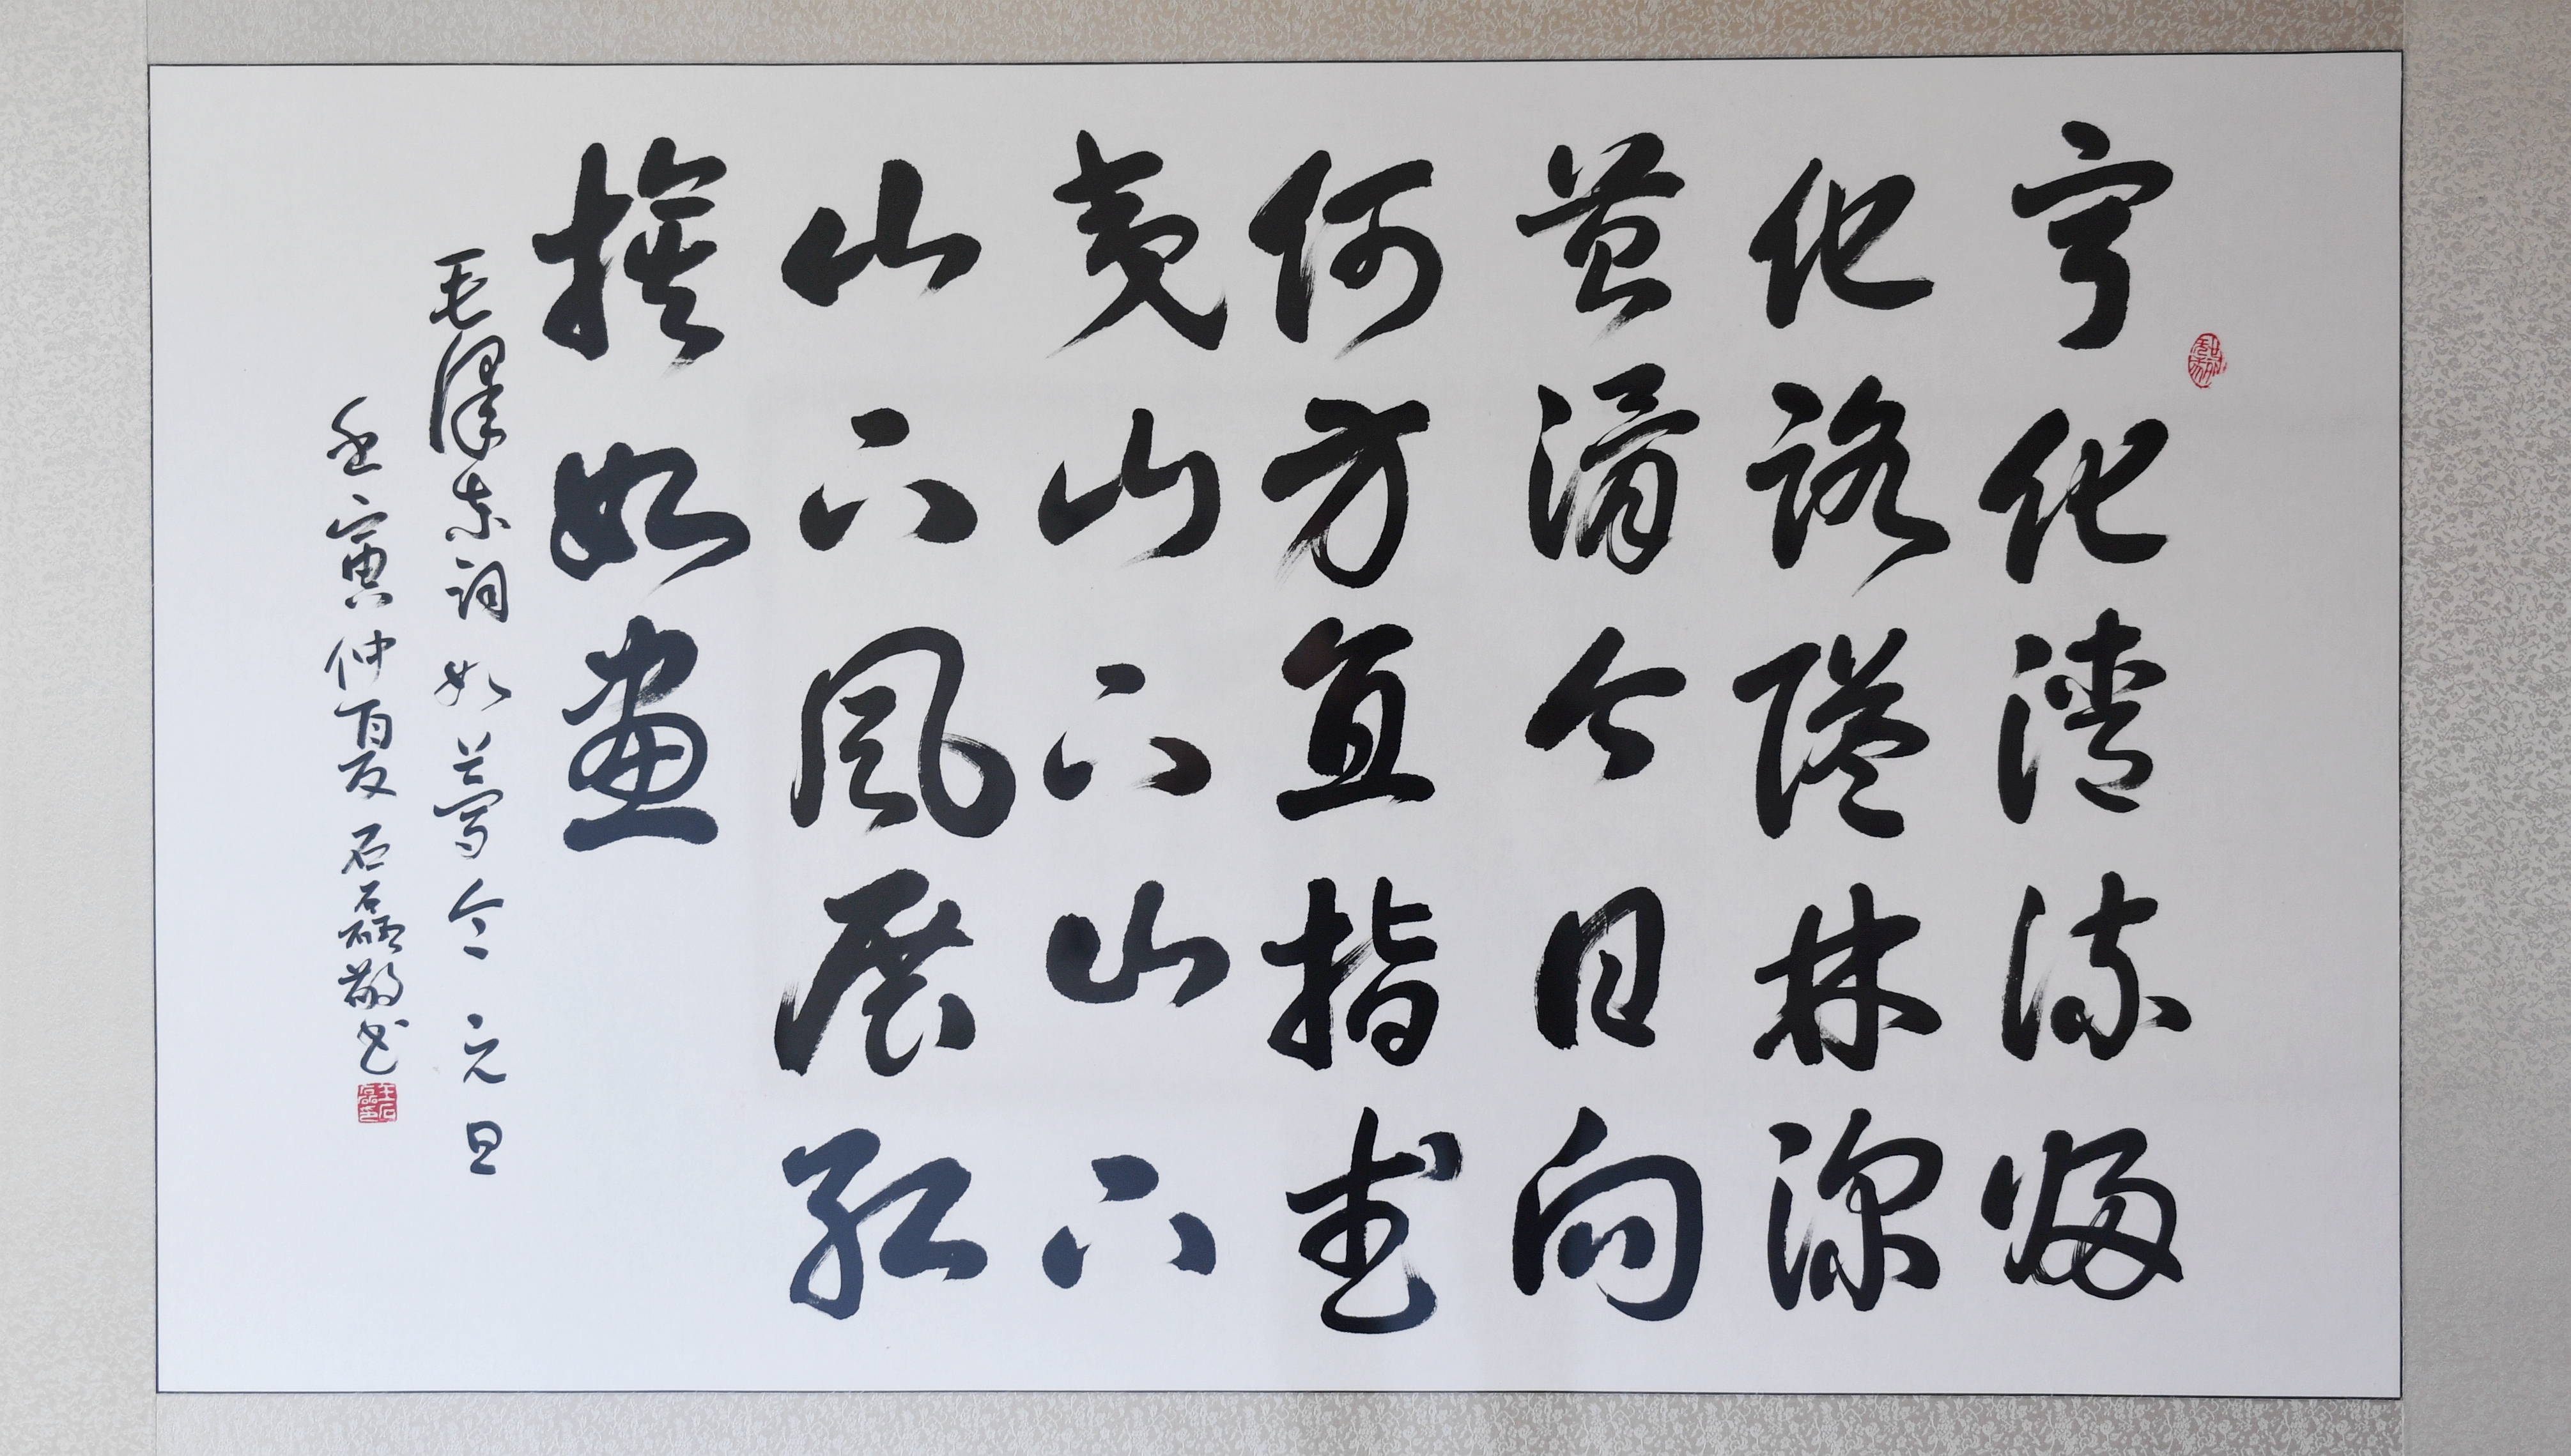 宁化清流归
化路隘林深
苔滑今日向
何方直指武
夷山下山下
山下风展红
旗如畫
毛澤东词如夢令元旦
壬寅仲夏石磊敬书
王石磊印